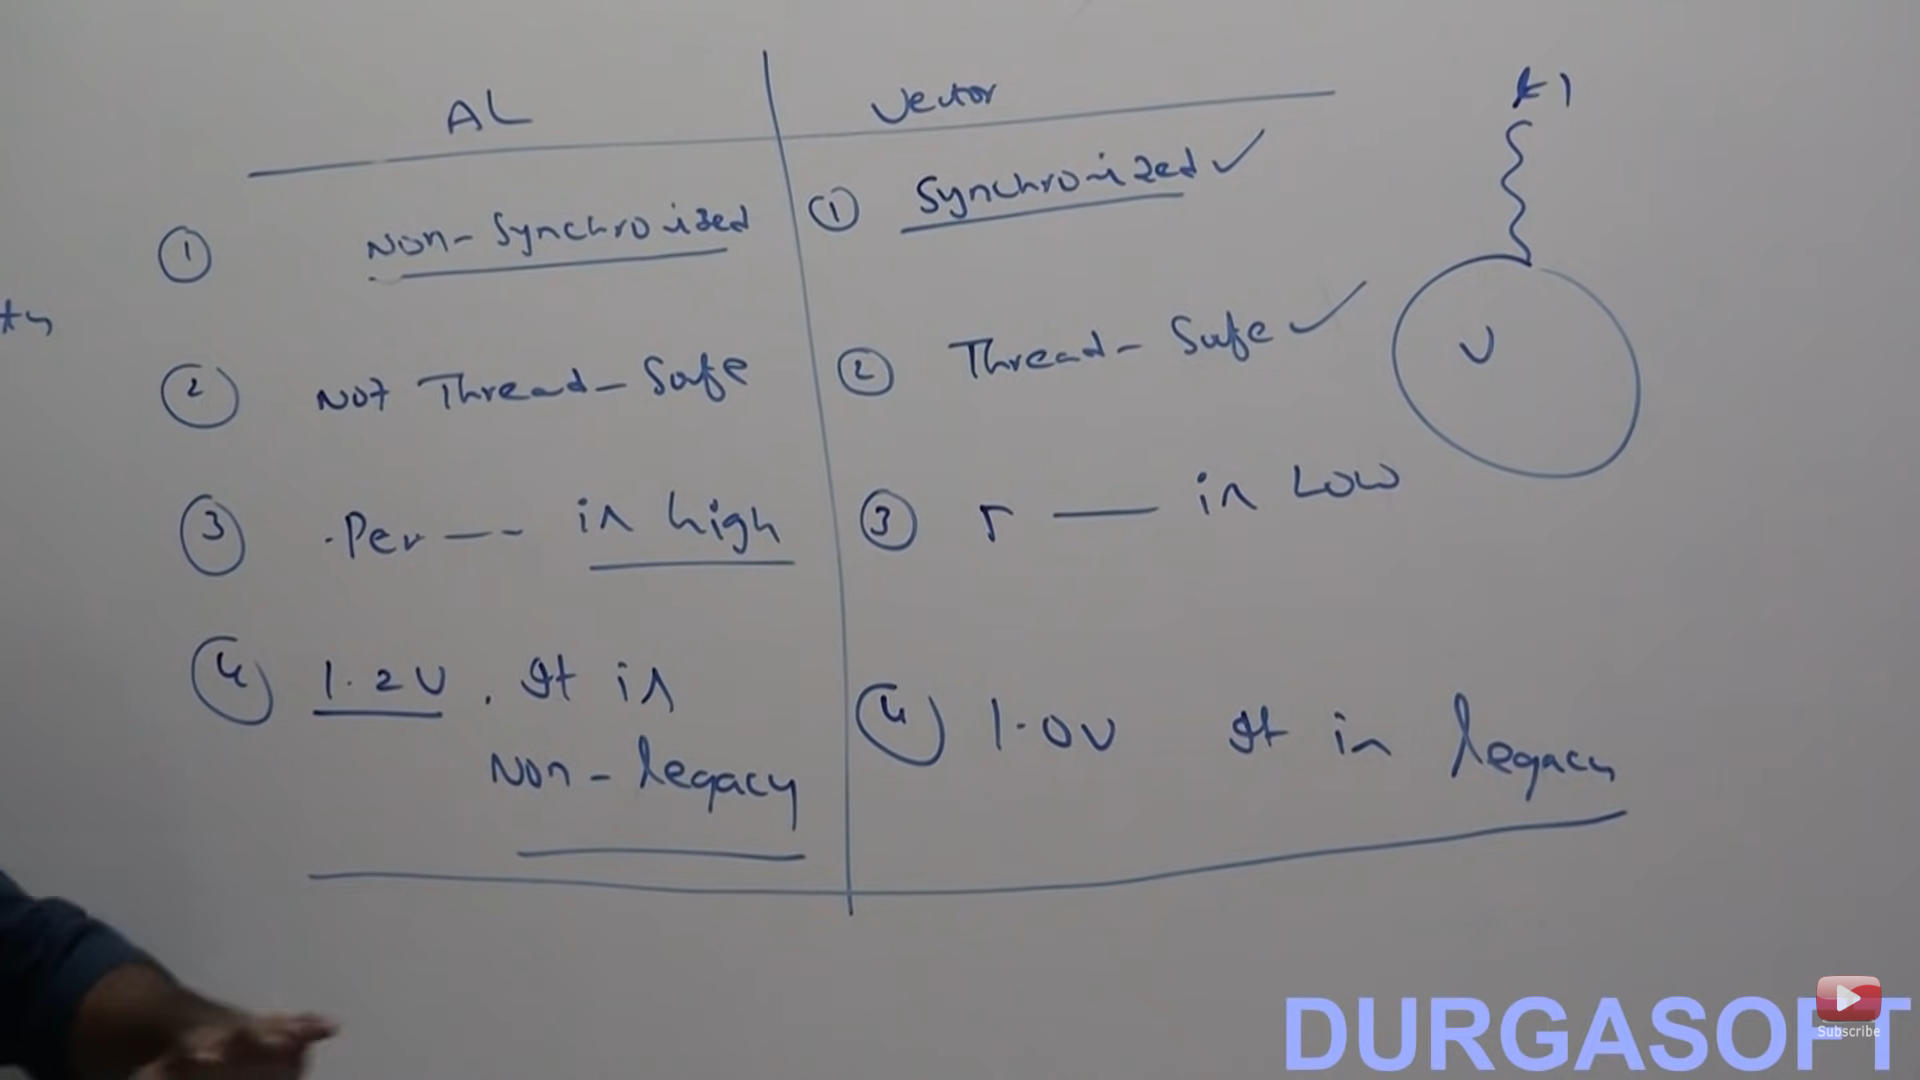 AL
Vector
t1
① Non-Synchronized
① Synchronized ✓
② Not Thread-Safe
② Thread-Safe ✓
V
③ Per--- is high
③ r — is Low
④ 1.2V. It is
Non-legacy
④ 1.0V It is legacy
DURGASOFT
Subscribe